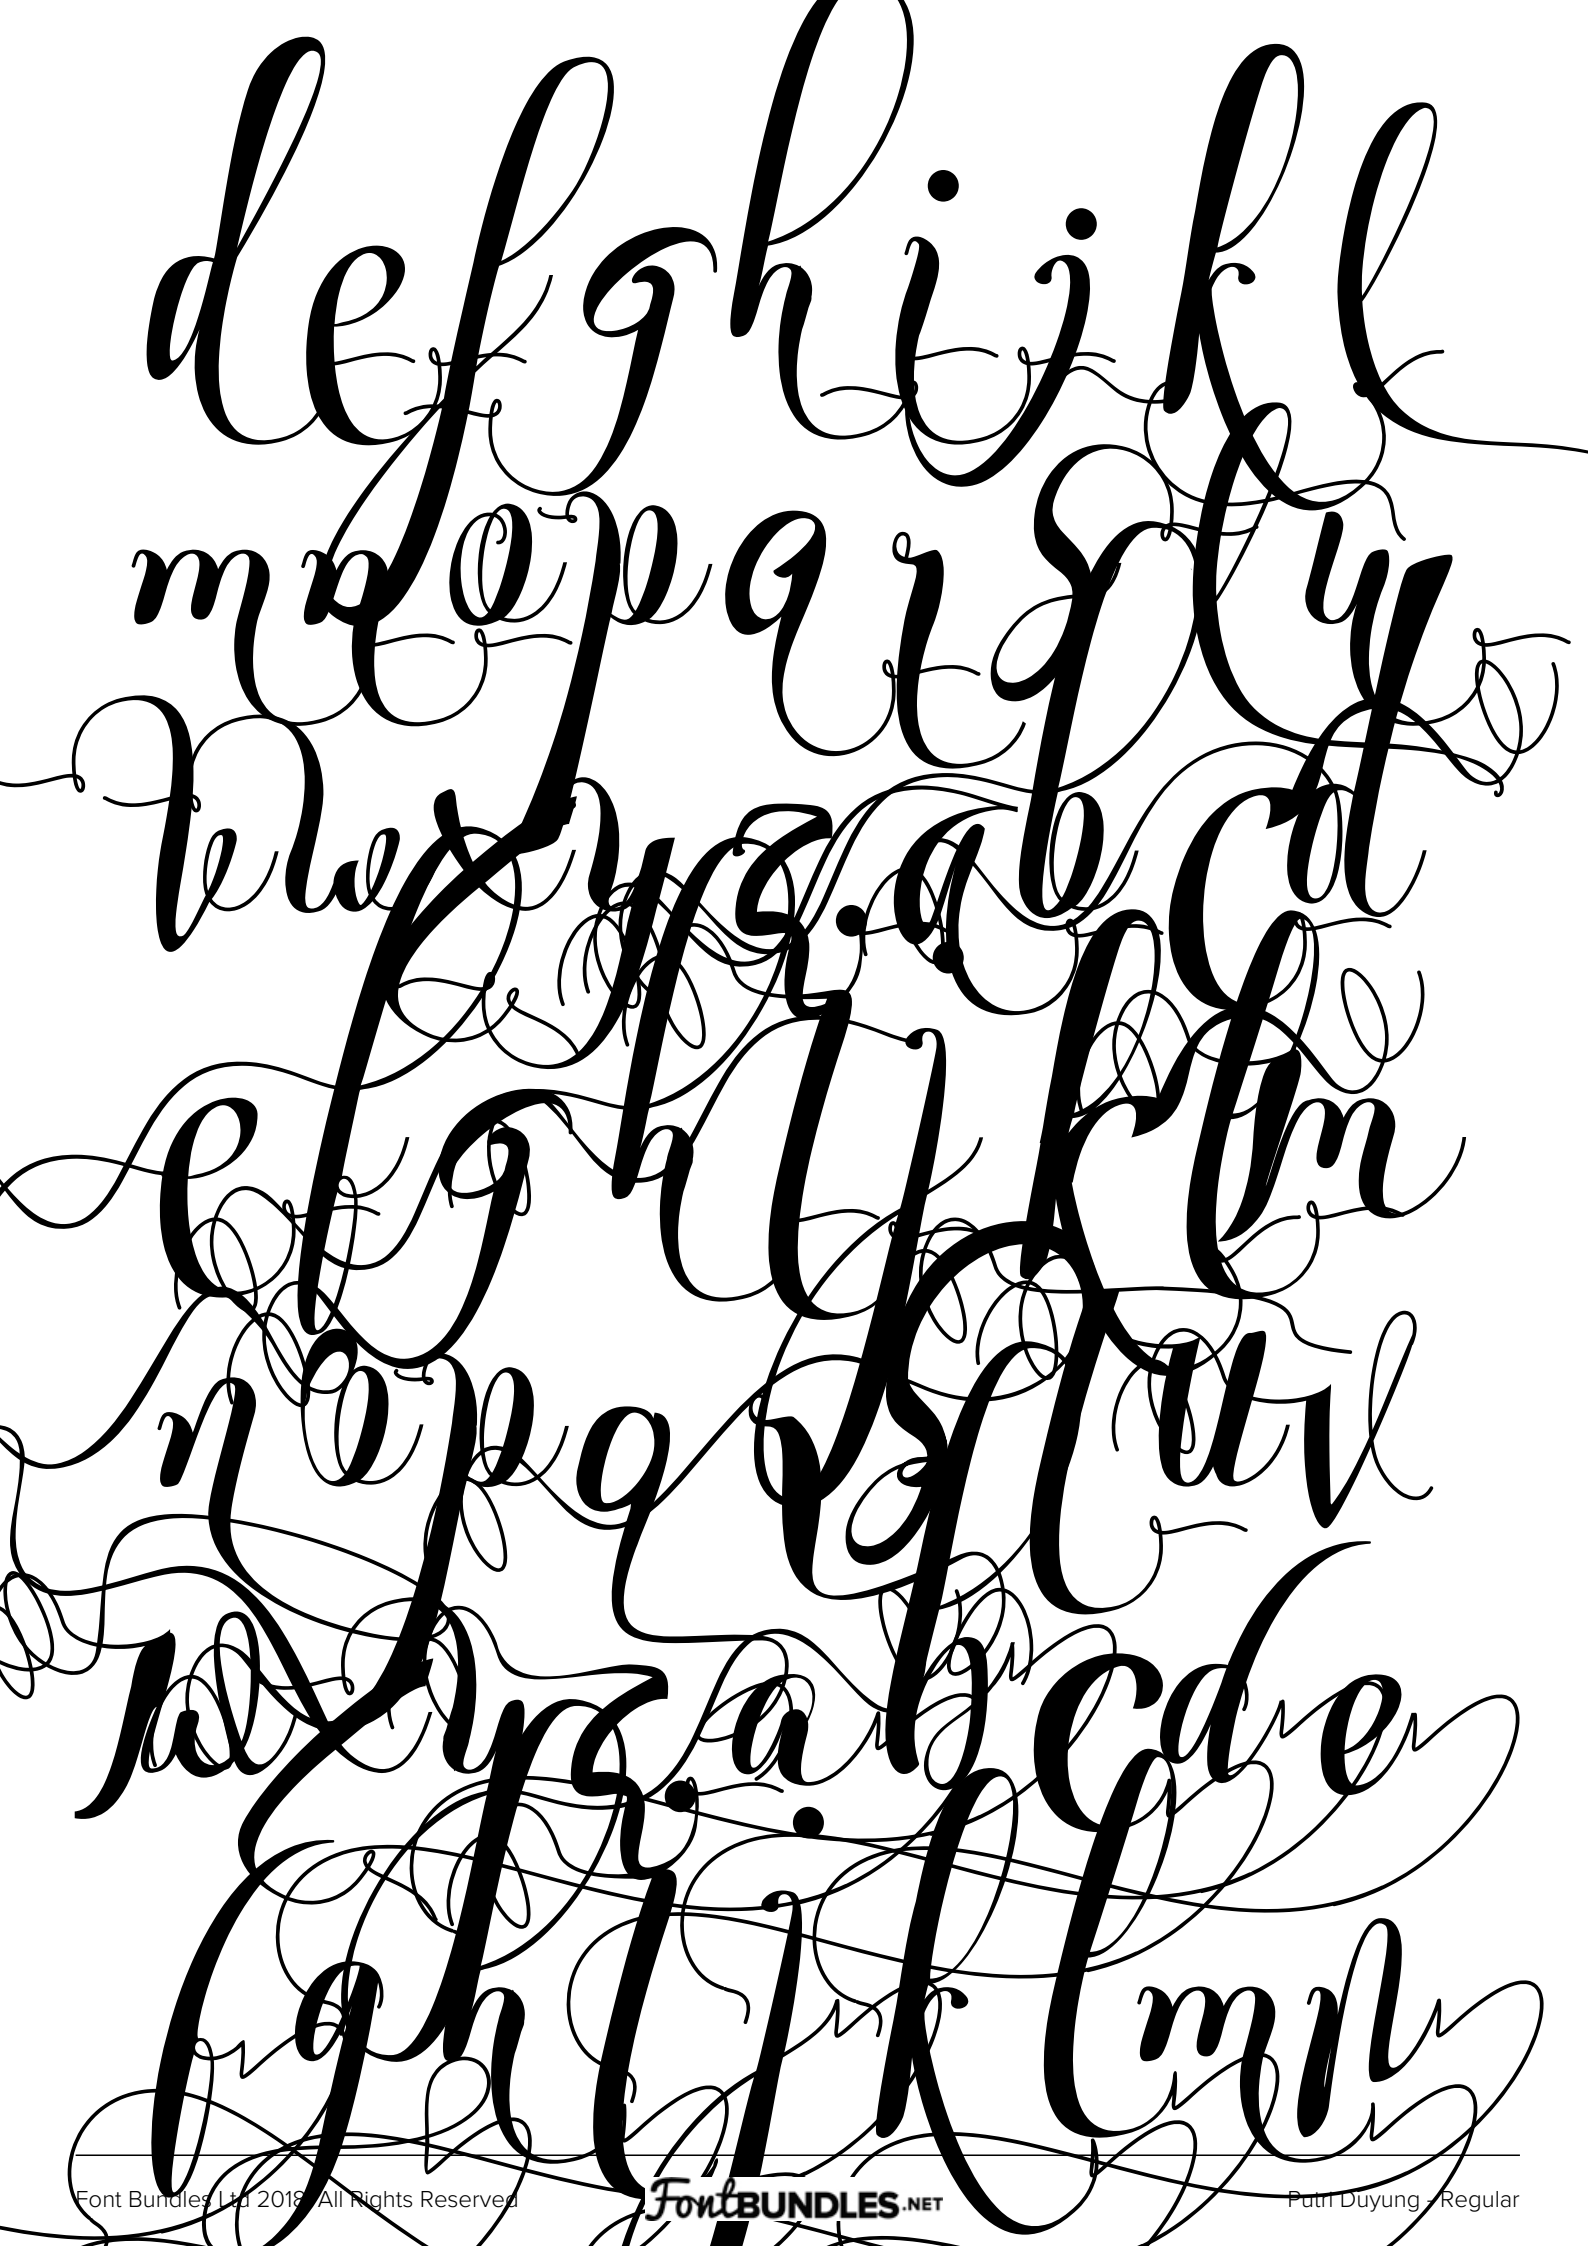 d e f g h i j k l
m n o p q r s t y
w x y z . a b c d
e f g h i j k l m
n o p q r s t u v
w x y z a b c d e
f g h i j k l m n
Font Bundles Ltd 2018. All Rights Reserved FontBUNDLES.NET Putri Duyung - Regular